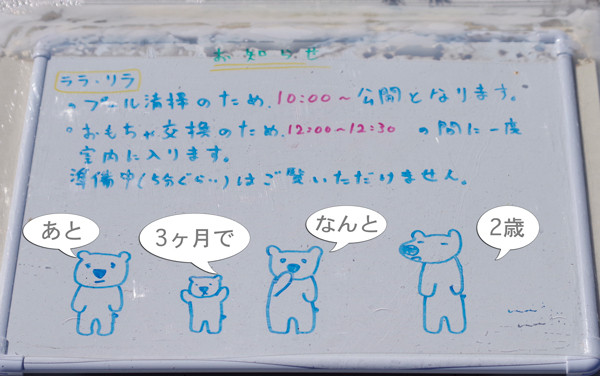 お知らせ
ララ・リラ
・プール清掃のため、10:00～公開となります。
・おもちゃ交換のため、12:00～12:30 の間に一度
室内に入ります。
準備中(5分ぐらい)はご覧いただけません。
あと
3ヶ月で
なんと
2歳